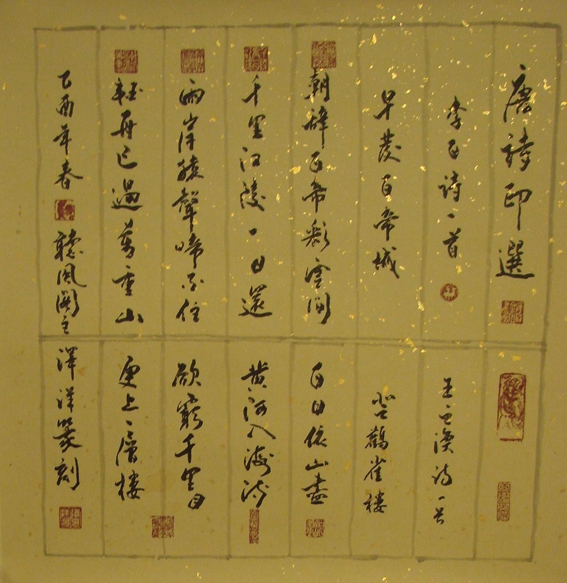 唐詩印選
李白诗一首
早發白帝城
朝辭白帝彩雲間
千里江陵一日還
兩岸猿聲啼不住
輕舟已過萬重山
王之渙诗一首
登鸛雀樓
白日依山盡
黄河入海流
欲窮千里目
更上一層樓
乙酉年春 聽風閣主 澤洋篆刻